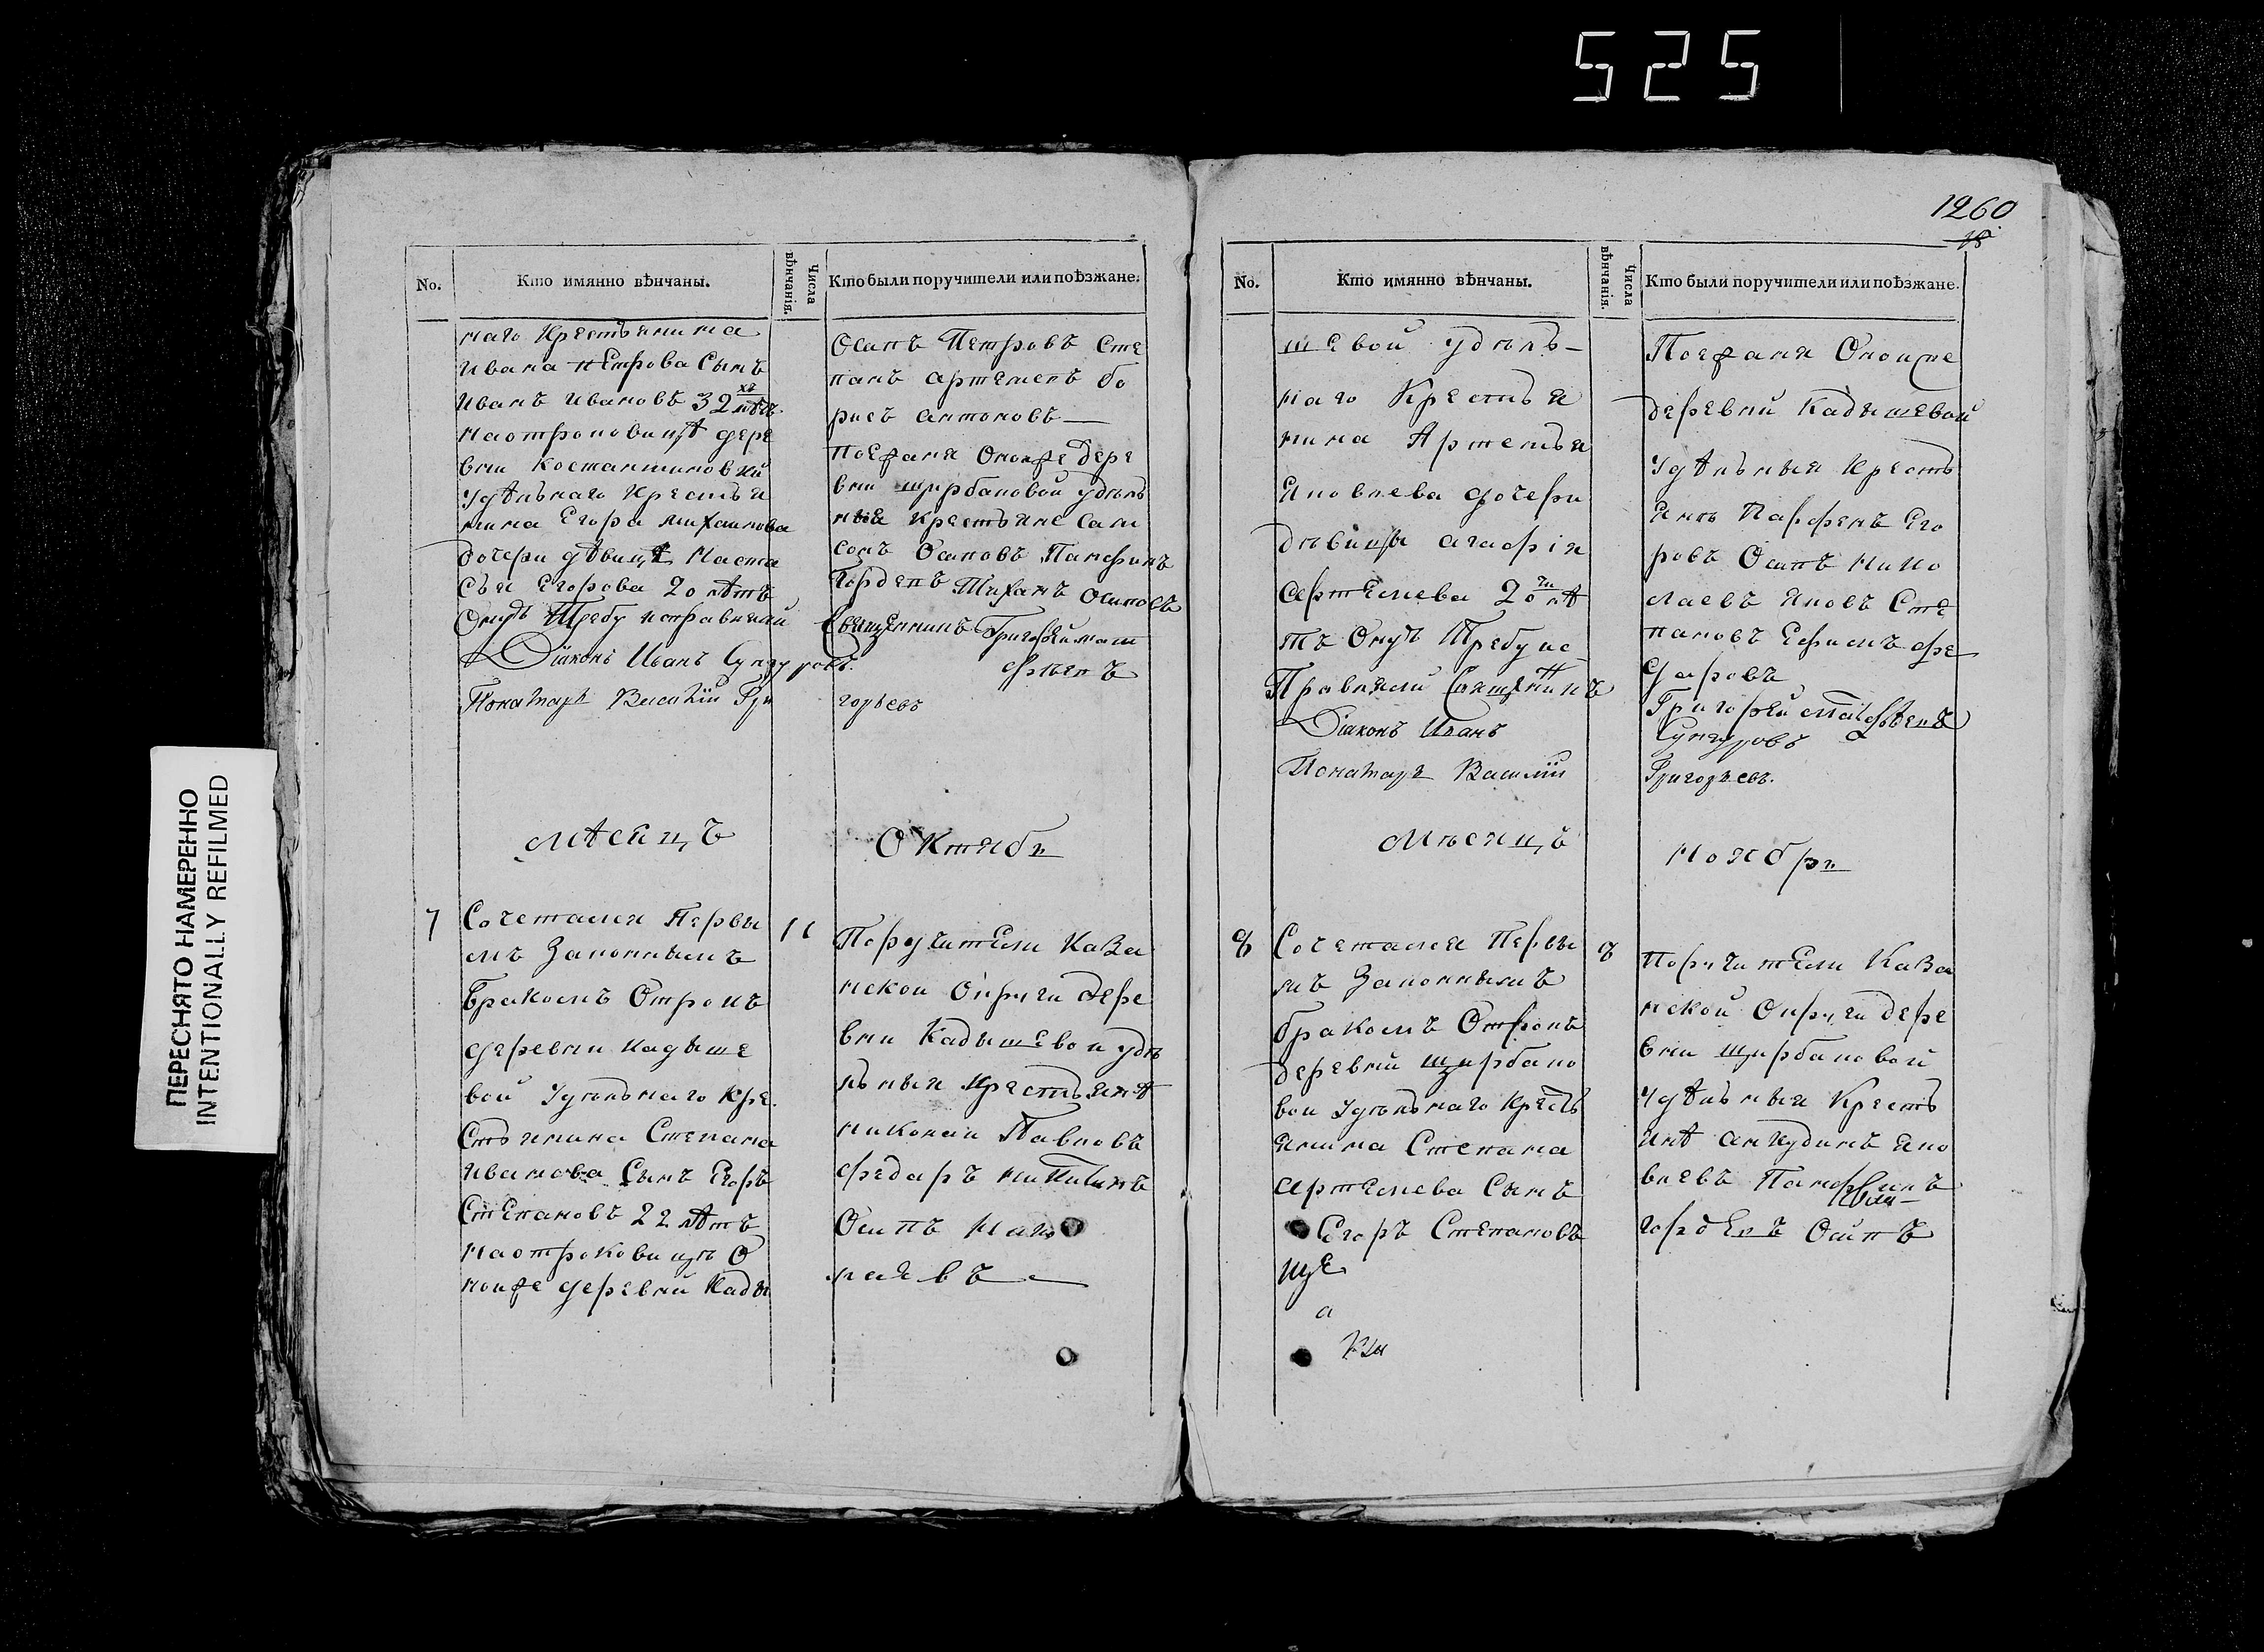 525
1260
18
No.
Кто имянно вѣнчаны.
Числа вѣнчанія.
Кто были поручители или поѣзжане.
наго Крестьянина
Ивана петрова Сынъ
Иванъ Ивановъ 32 хъ лѣтъ
наотроковицѣ дере
вни Костантиновки
Удѣльнаго Крестья
нина Егора михаилова
дочери дѣвицѣ Наста
сьи Егорова 20 лѣтъ
Онуъ Требу исправляли
Діаконъ Иванъ Сунгуровъ.
Понамарь Василій Гри
Осипъ Петровъ Сте
панъ артемевъ бо
рисъ антоновъ
поезжаня Оноиже дере
вни щирбаковой удѣль
ныя крестьяне сам
сонъ Осиповъ Памфилъ
Гордеевъ Тиханъ Осиповъ
Священникъ Григорей мат
фѣевъ
горьевъ
мѣсяцъ
Октябь
7
Сочетался Первы
мъ Законнымъ
Бракомъ Отрокъ
деревни кадыше
вой Удѣльнаго Кре
Стьянина Степана
иванова Сынъ Егоръ
Степановъ 22 лѣтъ
наотроковицѣ О
ноиже деревни Кады
11
Поручители Каза
нской Округи дере
вни Кадышевои удѣ
льныя крестьянѣ
николаи Павловъ
федаръ никитинъ
Осипъ Нико
лаявъ
No.
Кто имянно вѣнчаны.
Числа вѣнчанія.
Кто были поручители или поѣзжане.
шевой удѣль
наго Крестья
нина Артемья
Яковлева дочери
дѣвицы агафія
артемева 20 ти лѣ
тъ Онуъ Требу ис
Правляли Священникъ
Діаконъ Иванъ
Понамарь Василій
Поезжаня Оноиже
деревни кадышевой
Удѣльныя кресть
янѣ Парфенъ Его
ровъ Осипъ нико
лаевъ яковъ Сте
пановъ Ефимъ фе
даровъ
Григорей Матфѣевъ
Сунгуровъ
Григорьевъ.
мѣсяцъ
ноябрь
8
Сочетался Первы
мъ Законнымъ
бракомъ Отрокъ
деревни щирбако
вои удѣльнаго Кресть
янина Степана
артемева Сынъ
Егоръ Степановъ
ще
а
8
Поручители Каза
нской Округи дере
вни щирбаковой
Удѣльныя Кресть
янѣ анкудинъ яко
влевъ Памфилъ
гордевъ Осипъ